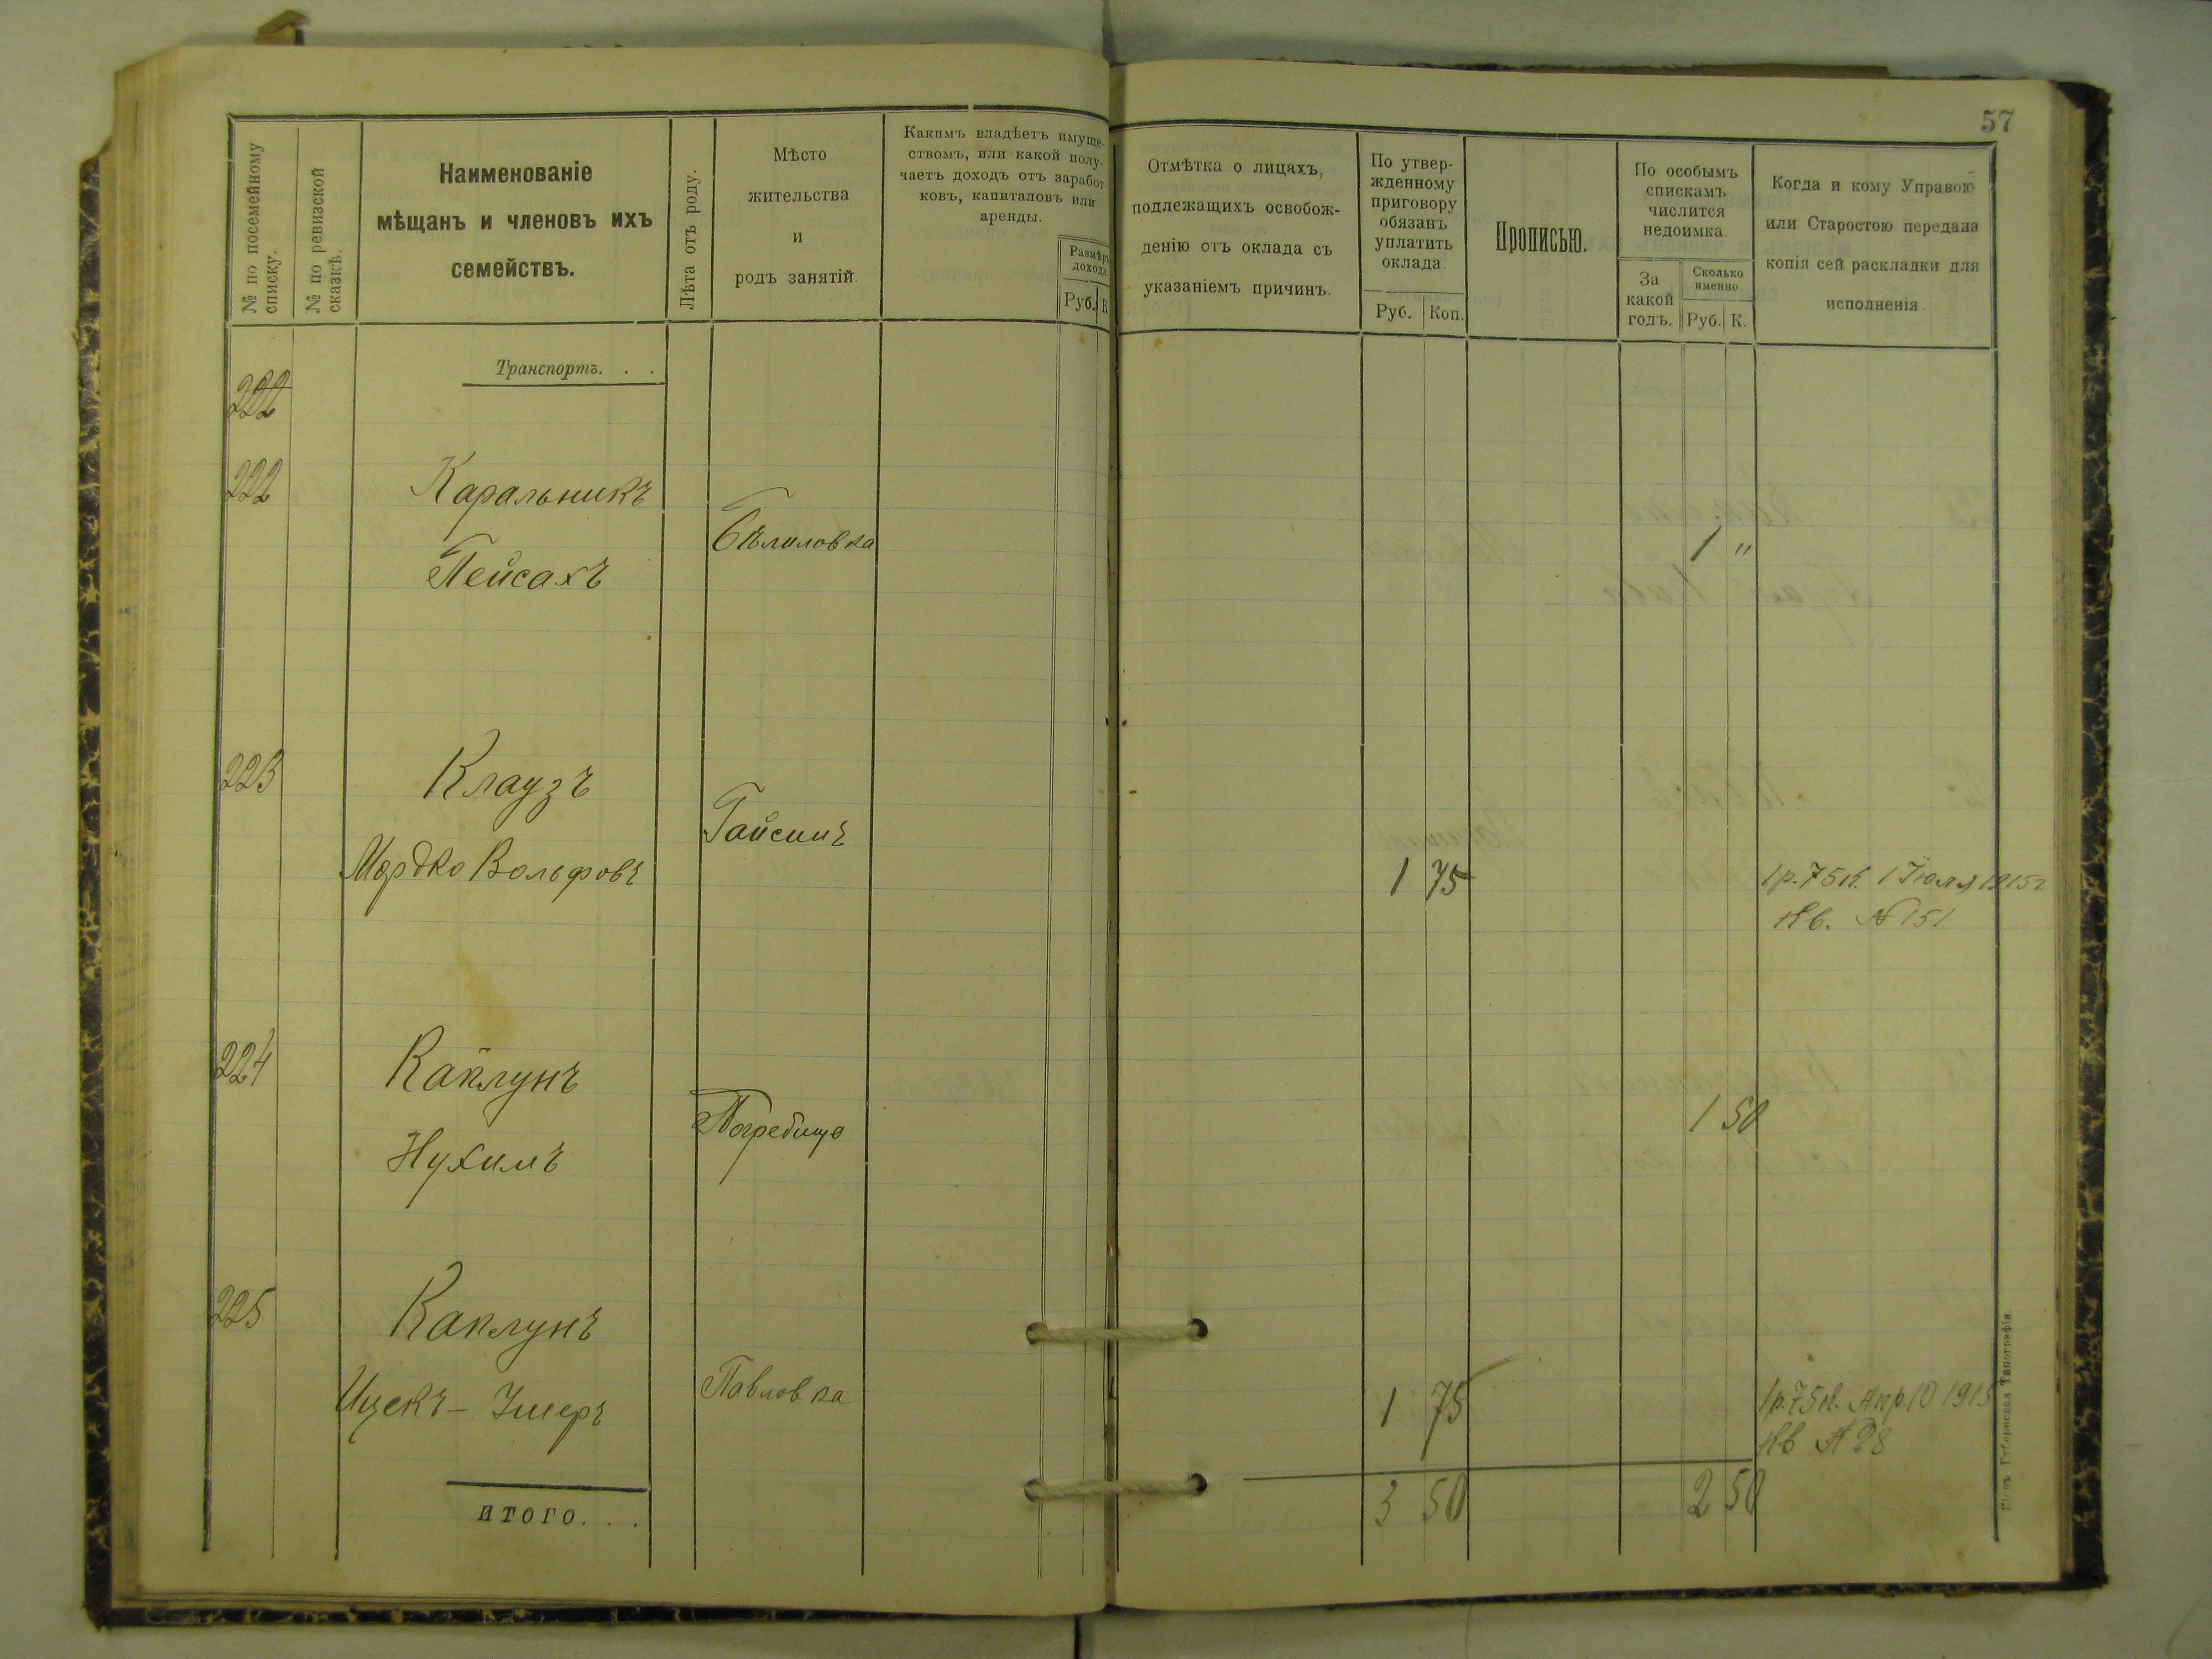 57
№ по посемейному списку.
№ по ревизской сказкѣ.
Наименованіе
мѣщанъ и членовъ ихъ
семействъ.
Лѣта отъ роду.
Мѣсто
жительства
и
родъ занятій
Какимъ владѣетъ имуще-
ствомъ, или какой полу-
чаетъ доходъ отъ заработ-
ковъ, капиталовъ или
аренды.
Размѣръ
дохода
Руб. К
Отмѣтка о лицахъ,
подлежащихъ освобож-
денію отъ оклада съ
указаніемъ причинъ.
По утвер-
жденному
приговору
обязанъ
уплатить
оклада.
Руб. Коп.
Прописью.
По особымъ
спискамъ
числится
недоимка.
За
какой
годъ.
Сколько
именно.
Руб. К.
Когда и кому Управою
или Старостою передана
копія сей раскладки для
исполненія.
Транспортъ. . .
222
222 Каральникъ
Бѣлиловка 1 "
Пейсахъ
223 Клаузъ
Гайсинъ
Мордко Вольфовъ 1 75 1 р. 75 к. 1 Іюля 1915 г
Кв. № 151
224 Каплунъ
Погребище 1 50
Нухимъ
225 Каплунъ
Павловка
Ицекъ - Умеръ 1 75 1 р. 75 к. Апр. 10 1915
Кв № 28
ИТОГО. . . 3 50 2 50
Губернская Типографія.